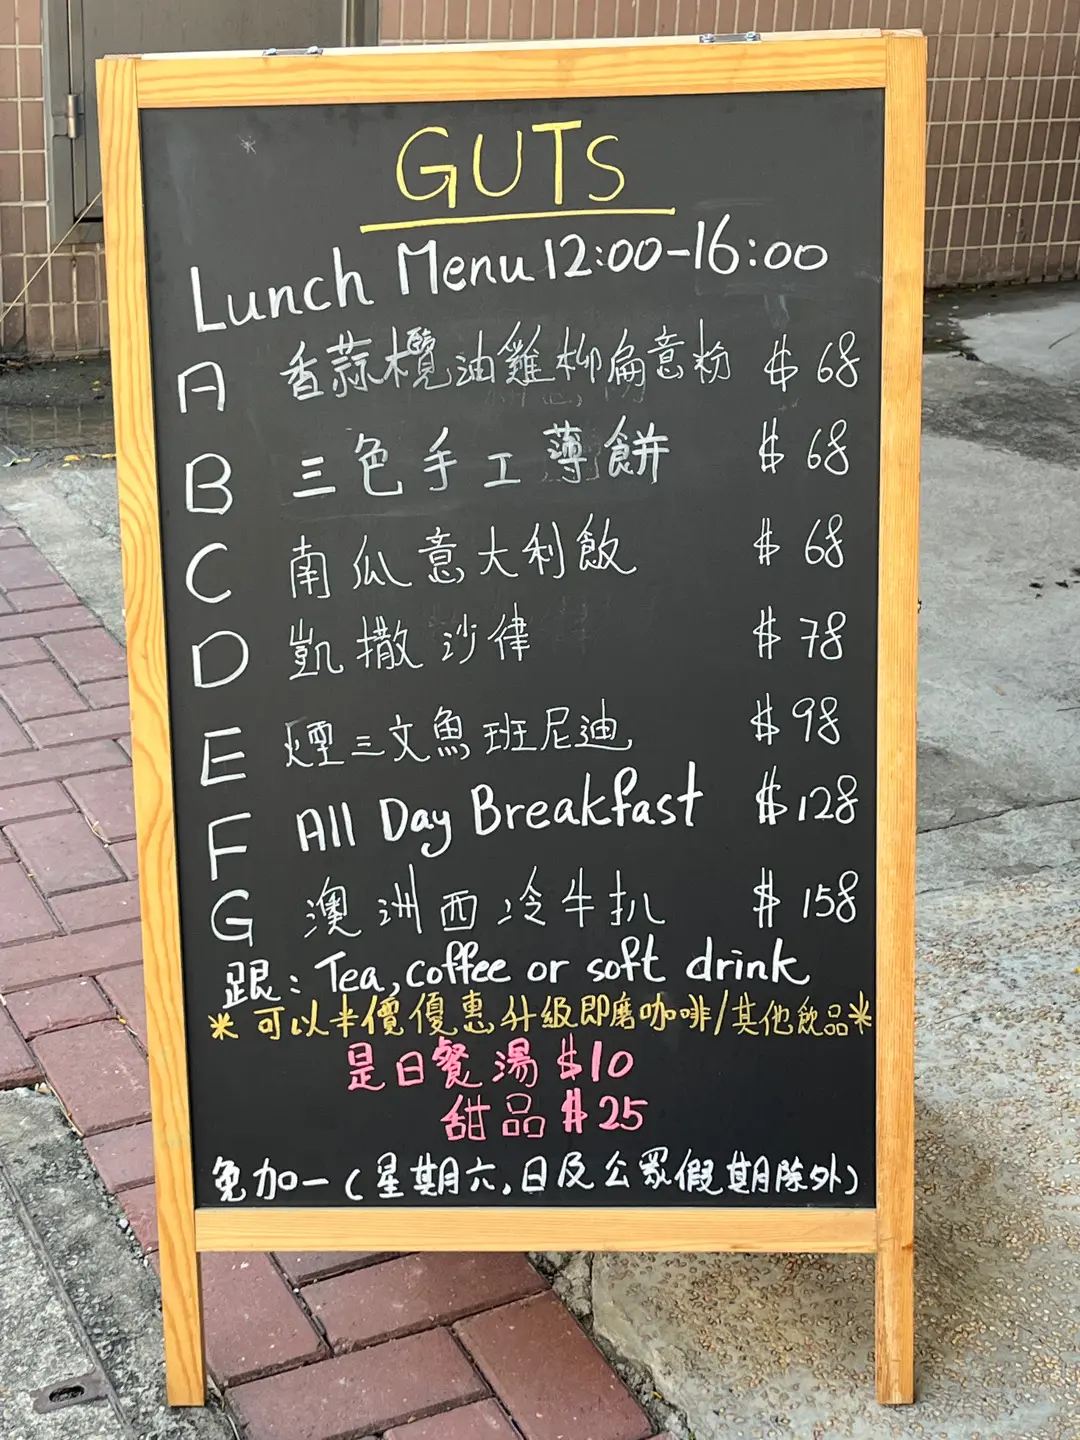 GUTS
Lunch Menu 12:00-16:00
A 香蒜欖油雞柳扁意粉 $68
B 三色手工薄餅 $68
C 南瓜意大利飯 $68
D 凱撒沙律 $78
E 煙三文魚班尼迪 $98
F All Day Breakfast $128
G 澳洲西冷牛扒 $158
跟: Tea, coffee or soft drink
*可以半價優惠升級即磨咖啡/其他飲品*
是日餐湯 $10
甜品 $25
免加一 (星期六,日及公眾假期除外)